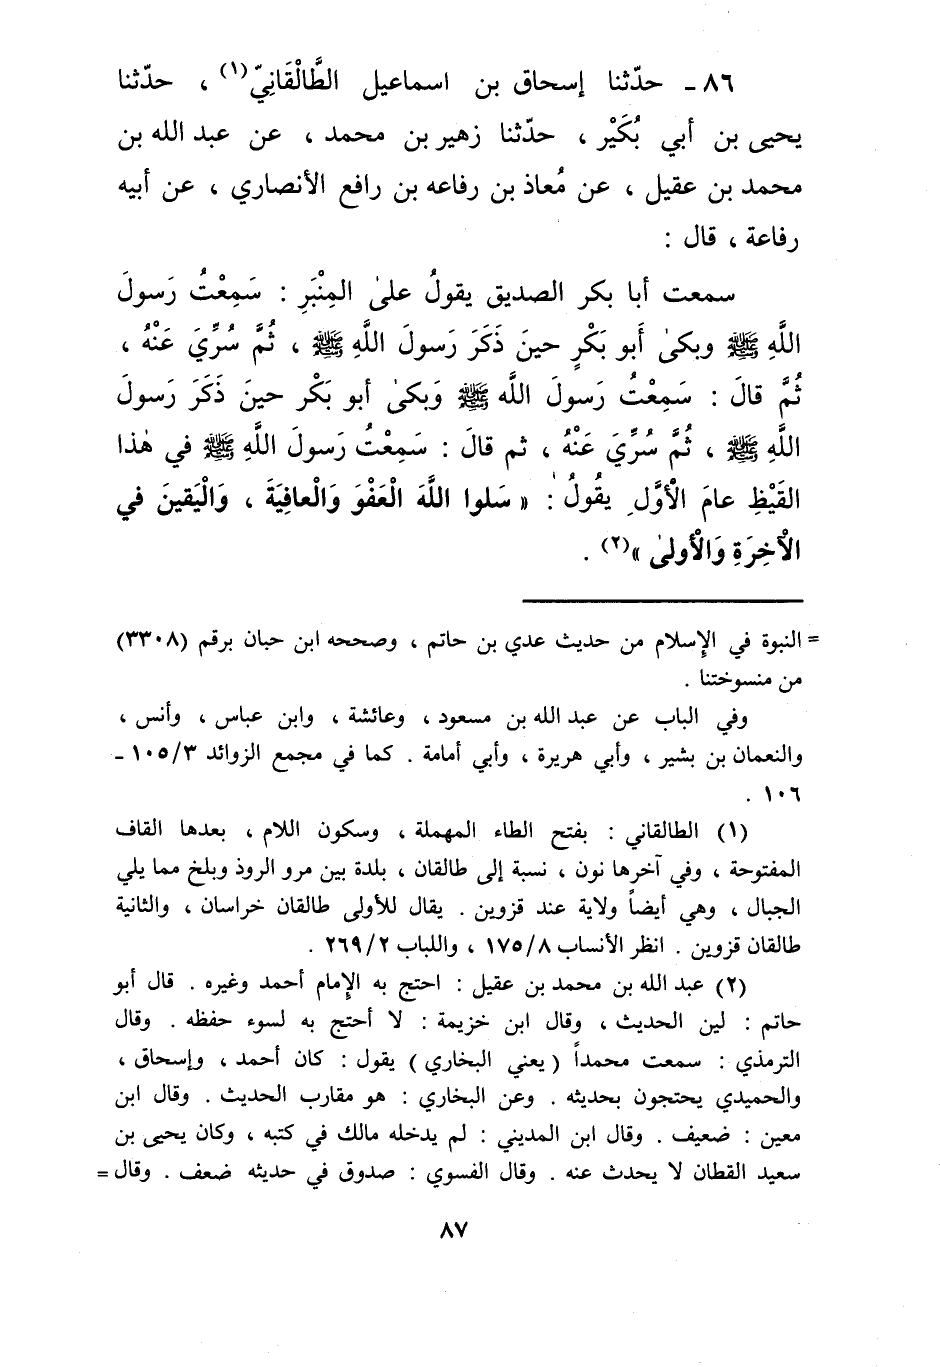 ٨٦ ـ حدّثنا إسحاق بن اسماعيل الطَّالْقَانِيّ(١) ، حدّثنا
يحيى بن أبي بُكَيْر ، حدّثنا زهير بن محمد ، عن عبد الله بن
محمد بن عقيل ، عن مُعاذ بن رفاعه بن رافع الأنصاري ، عن أبيه
رفاعة ، قال :
سمعت أبا بكر الصديق يقولُ على المِنْبَرِ : سَمِعْتُ رَسولَ
اللَّهِ ﷺ وبكىٰ أَبو بَكْرٍ حينَ ذَكَرَ رَسولَ اللَّهِ ﷺ ، ثُمَّ سُرِّيَ عَنْهُ ،
ثُمَّ قالَ : سَمِعْتُ رَسولَ اللَّه ﷺ وَبكىٰ أبو بَكْر حينَ ذَكَرَ رَسولَ
اللَّهِ ﷺ ، ثُمَّ سُرِّيَ عَنْهُ ، ثم قالَ : سَمِعْتُ رَسولَ اللَّهِ ﷺ في هٰذا
القَيْظِ عامَ الْأوَّلِ يقُولُ : « سَلوا اللَّهَ الْعَفْوَ وَالْعافِيَةَ ، وَالْيَقينَ في
الْآخِرَةِ وَالْأولىٰ »(٢) .
= النبوة في الإسلام من حديث عدي بن حاتم ، وصححه ابن حبان برقم (٣٣٠٨)
من منسوختنا .
وفي الباب عن عبد الله بن مسعود ، وعائشة ، وابن عباس ، وأنس ،
والنعمان بن بشير ، وأبي هريرة ، وأبي أمامة . كما في مجمع الزوائد ١٠٥/٣ ـ
١٠٦ .
(١) الطالقاني : بفتح الطاء المهملة ، وسكون اللام ، بعدها القاف
المفتوحة ، وفي آخرها نون ، نسبة إلى طالقان ، بلدة بين مرو الروذ وبلخ مما يلي
الجبال ، وهي أيضاً ولاية عند قزوين . يقال للأولى طالقان خراسان ، والثانية
طالقان قزوين . انظر الأنساب ١٧٥/٨ ، واللباب ٢٦٩/٢ .
(٢) عبد الله بن محمد بن عقيل : احتج به الإمام أحمد وغيره . قال أبو
حاتم : لين الحديث ، وقال ابن خزيمة : لا أحتج به لسوء حفظه . وقال
الترمذي : سمعت محمداً (يعني البخاري) يقول : كان أحمد ، وإسحاق ،
والحميدي يحتجون بحديثه . وعن البخاري : هو مقارب الحديث . وقال ابن
معين : ضعيف . وقال ابن المديني : لم يدخله مالك في كتبه ، وكان يحيى بن
سعيد القطان لا يحدث عنه . وقال الفسوي : صدوق في حديثه ضعف . وقال =
٨٧